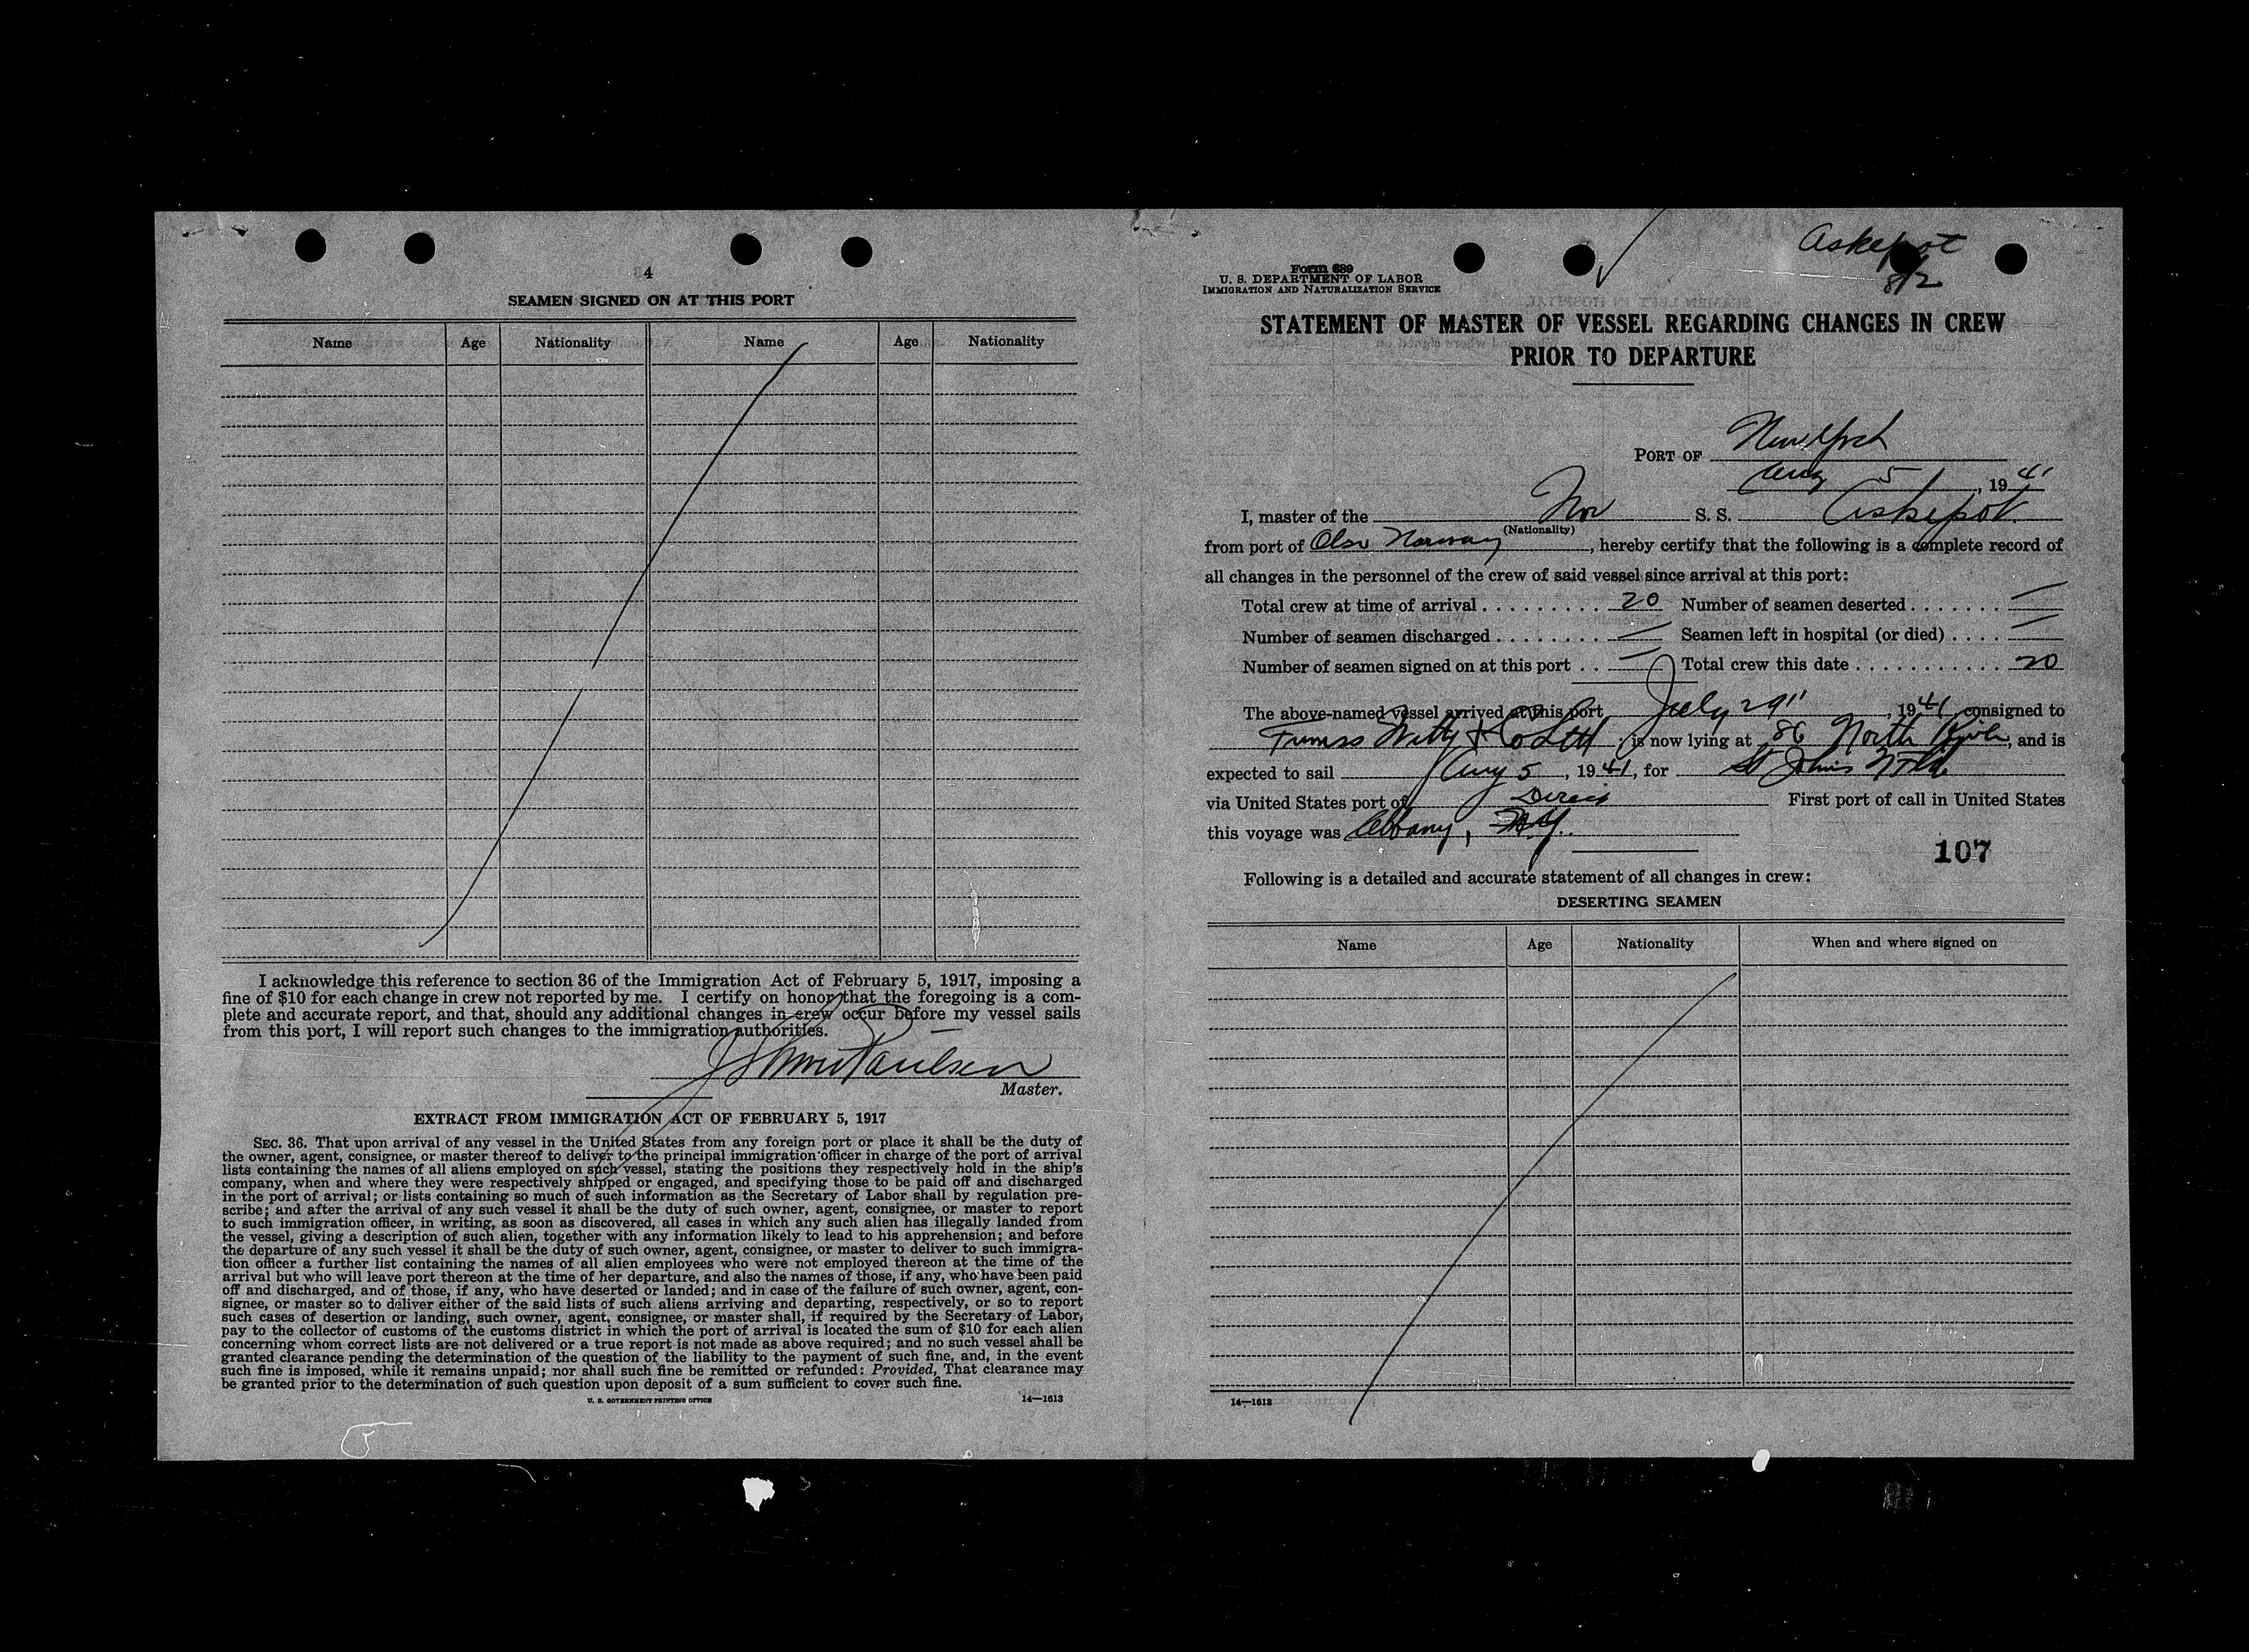 4
SEAMEN SIGNED ON AT THIS PORT
Name Age Nationality Name Age Nationality
I acknowledge this reference to section 36 of the Immigration Act of February 5, 1917, imposing a
fine of $10 for each change in crew not reported by me. I certify on honor that the foregoing is a com-
plete and accurate report, and that, should any additional changes in crew occur before my vessel sails
from this port, I will report such changes to the immigration authorities.
Paulsen
Master.
EXTRACT FROM IMMIGRATION ACT OF FEBRUARY 5, 1917
SEC. 36. That upon arrival of any vessel in the United States from any foreign port or place it shall be the duty of
the owner, agent, consignee, or master thereof to deliver to the principal immigration officer in charge of the port of arrival
lists containing the names of all aliens employed on such vessel, stating the positions they respectively hold in the ship's
company, when and where they were respectively shipped or engaged, and specifying those to be paid off and discharged
in the port of arrival; or lists containing so much of such information as the Secretary of Labor shall by regulation pre-
scribe; and after the arrival of any such vessel it shall be the duty of such owner, agent, consignee, or master to report
to such immigration officer, in writing, as soon as discovered, all cases in which any such alien has illegally landed from
the vessel, giving a description of such alien, together with any information likely to lead to his apprehension; and before
the departure of any such vessel it shall be the duty of such owner, agent, consignee, or master to deliver to such immigra-
tion officer a further list containing the names of all alien employees who were not employed thereon at the time of the
arrival but who will leave port thereon at the time of her departure, and also the names of those, if any, who have been paid
off and discharged, and of those, if any, who have deserted or landed; and in case of the failure of such owner, agent, con-
signee, or master so to deliver either of the said lists of such aliens arriving and departing, respectively, or so to report
such cases of desertion or landing, such owner, agent, consignee, or master shall, if required by the Secretary of Labor,
pay to the collector of customs of the customs district in which the port of arrival is located the sum of $10 for each alien
concerning whom correct lists are not delivered or a true report is not made as above required; and no such vessel shall be
granted clearance pending the determination of the question of the liability to the payment of such fine, and, in the event
such fine is imposed, while it remains unpaid; nor shall such fine be remitted or refunded: Provided, That clearance may
be granted prior to the determination of such question upon deposit of a sum sufficient to cover such fine.
U. S. GOVERNMENT PRINTING OFFICE 14—1613
Askepot
8/2
Form 689
U. S. DEPARTMENT OF LABOR
IMMIGRATION AND NATURALIZATION SERVICE
STATEMENT OF MASTER OF VESSEL REGARDING CHANGES IN CREW
PRIOR TO DEPARTURE
PORT OF New York
Aug 5, 1941
I, master of the Nor S. S. Askepot
(Nationality)
from port of Olso Norway, hereby certify that the following is a complete record of
all changes in the personnel of the crew of said vessel since arrival at this port:
Total crew at time of arrival 20 Number of seamen deserted —
Number of seamen discharged — Seamen left in hospital (or died) —
Number of seamen signed on at this port — Total crew this date 20
The above-named vessel arrived at this port July 29", 1941, consigned to
Furness Withy & Co Ltd; is now lying at 86 North River, and is
expected to sail Aug 5, 1941, for St Johns Nfld
via United States port of Direct First port of call in United States
this voyage was Albany, N.Y.
107
Following is a detailed and accurate statement of all changes in crew:
DESERTING SEAMEN
Name Age Nationality When and where signed on
14—1613